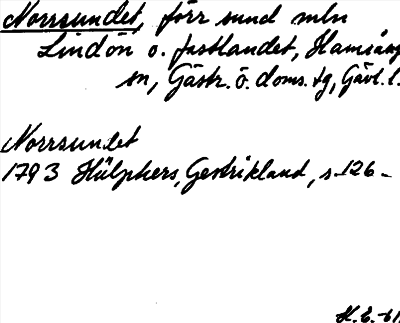 Norrsundet, förr sund mln
Lindön o. fastlandet, Hamrånge
sn, Gästr. ö. doms. tg, Gävl. l.
Norrsundet
1793 Hülphers, Gestrikland, s. 126.
H. E. -61